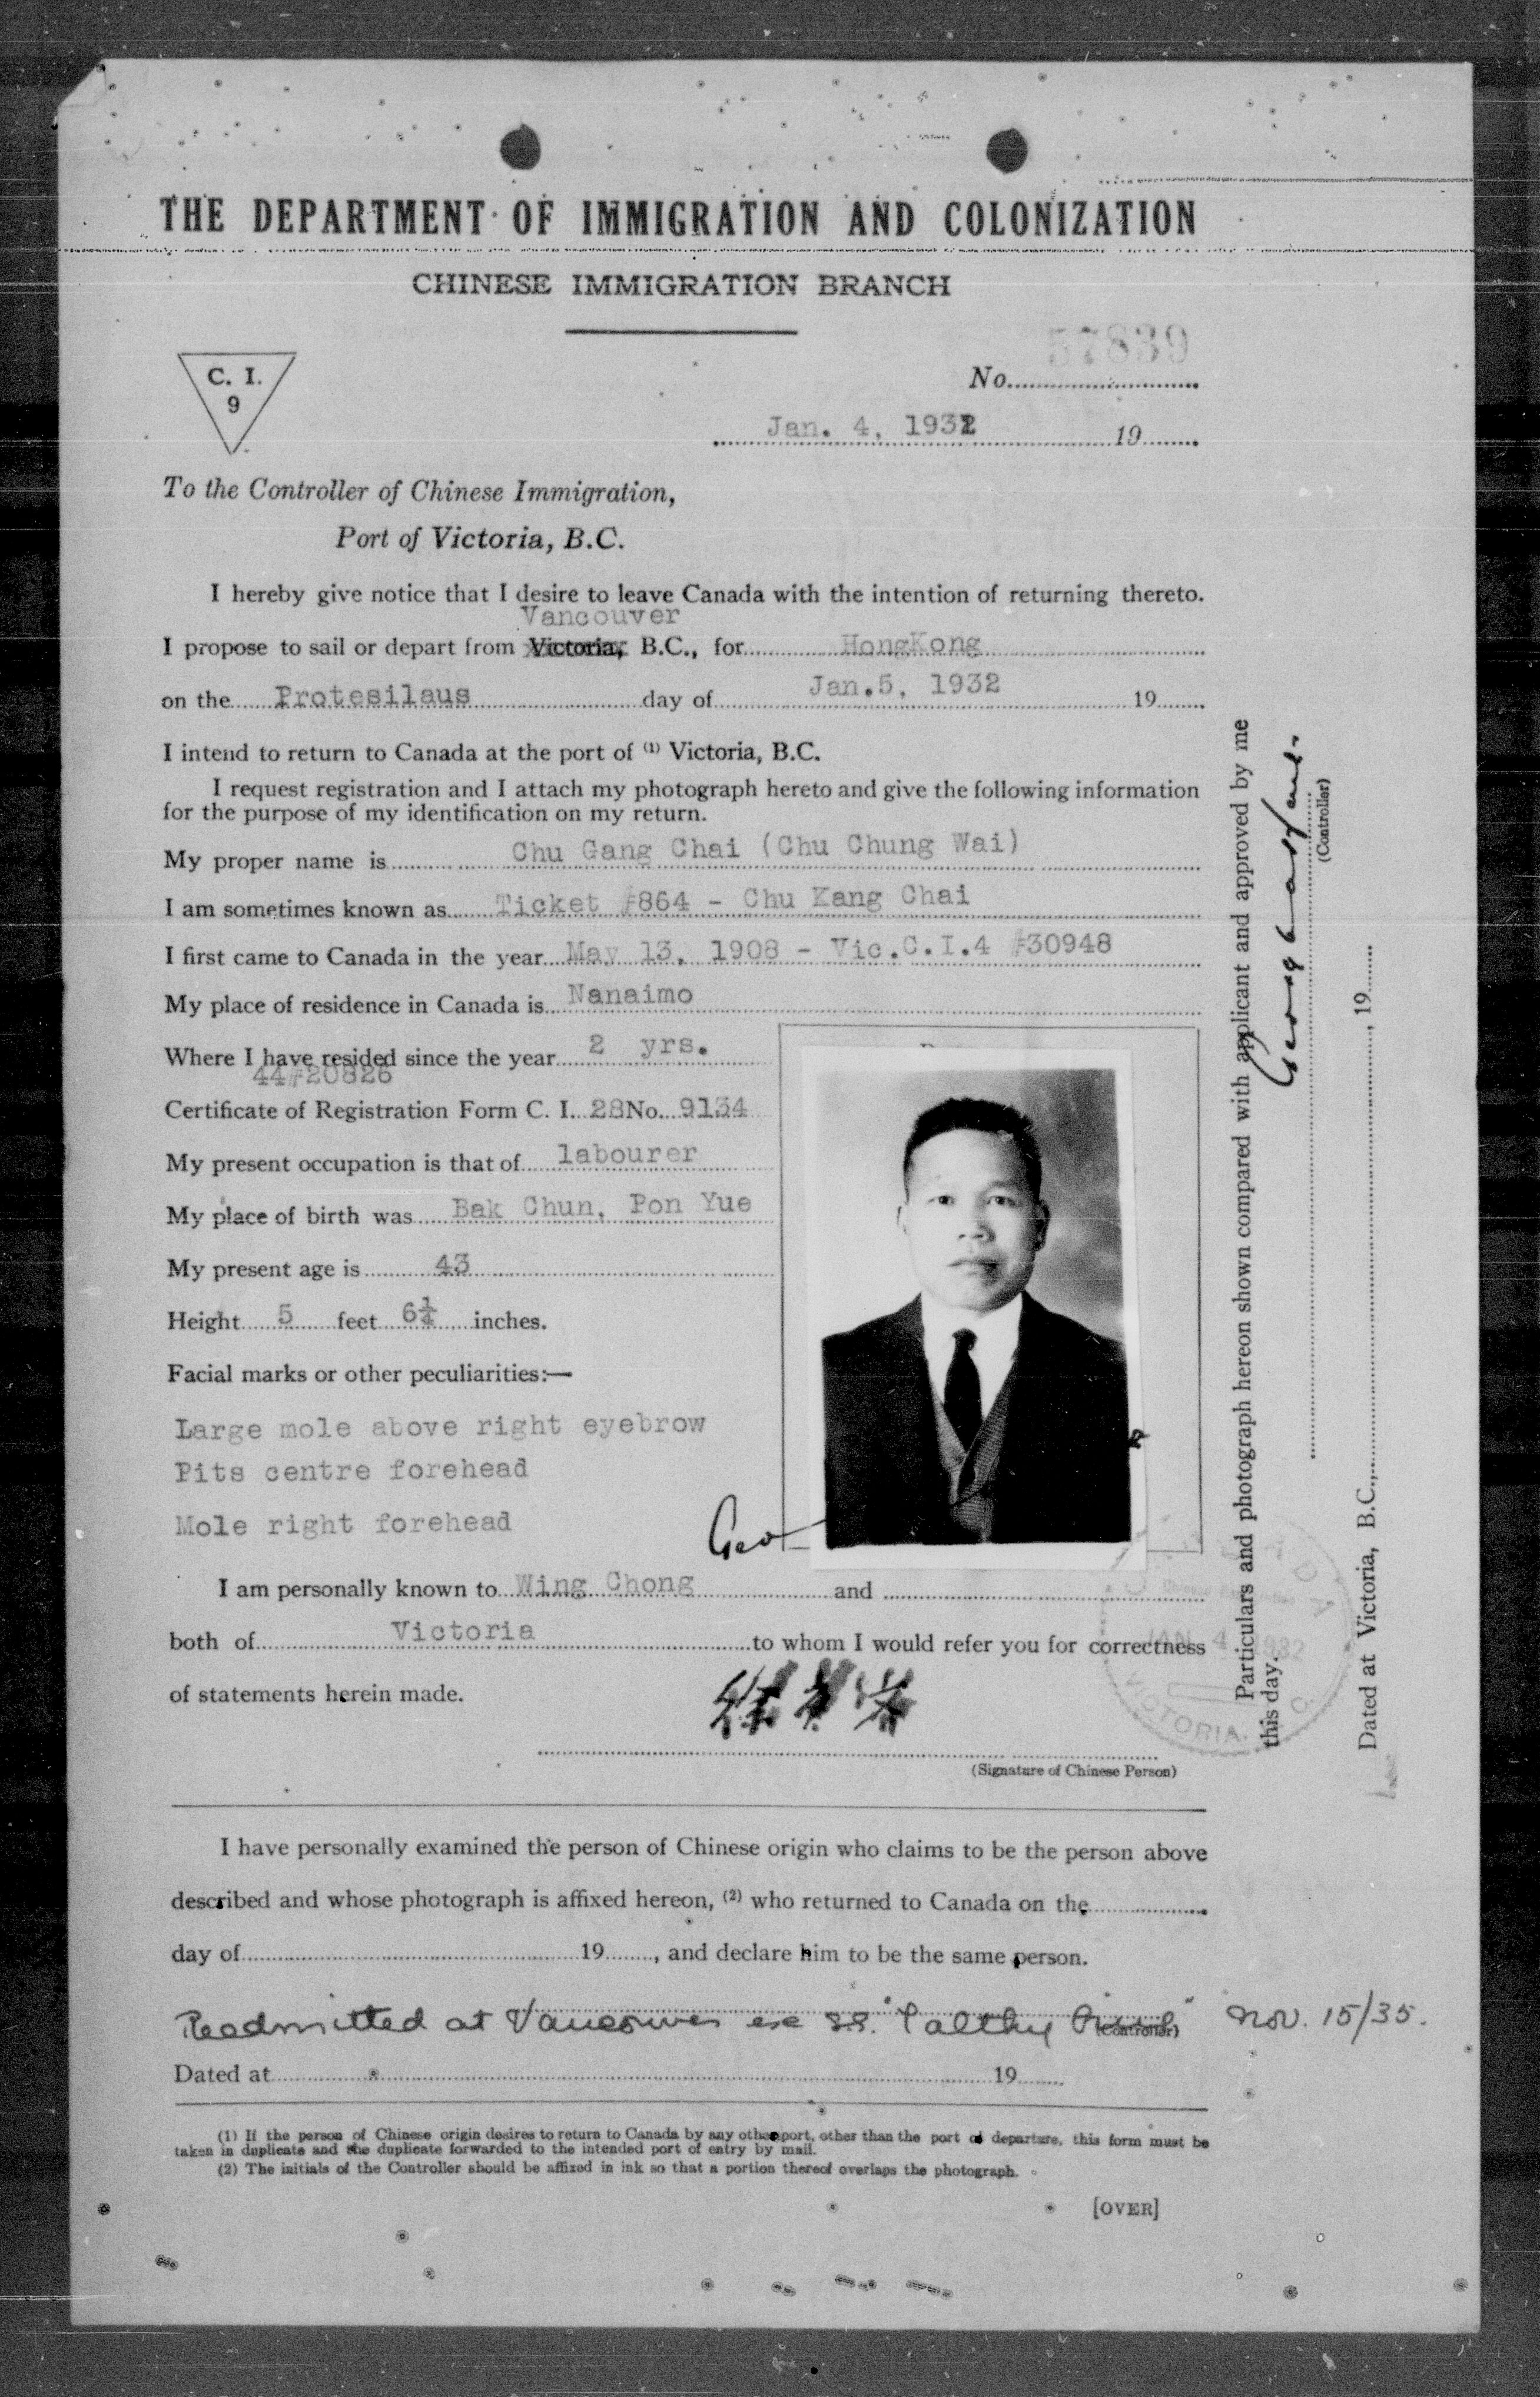 THE DEPARTMENT OF IMMIGRATION AND COLONIZATION
CHINESE IMMIGRATION BRANCH
C. I.
9
57839
No.
Jan. 4, 1932 19
To the Controller of Chinese Immigration,
Port of Victoria, B.C.
I hereby give notice that I desire to leave Canada with the intention of returning thereto.
Vancouver
I propose to sail or depart from Victoria, B.C., for HongKong
on the Protesilaus day of Jan.5, 1932 19
I intend to return to Canada at the port of (1) Victoria, B.C.
I request registration and I attach my photograph hereto and give the following information
for the purpose of my identification on my return.
My proper name is Chu Gang Chai (Chu Chung Wai)
I am sometimes known as Ticket #864 - Chu Kang Chai
I first came to Canada in the year May 13, 1908 - Vic.C.I.4 #30948
My place of residence in Canada is Nanaimo
Where I have resided since the year 2 yrs.
44#20826
Certificate of Registration Form C. I. 28 No. 9134
My present occupation is that of labourer
My place of birth was Bak Chun, Pon Yue
My present age is 43
Height 5 feet 6¼ inches.
Facial marks or other peculiarities:—
Large mole above right eyebrow
Pits centre forehead
Mole right forehead
Geo
I am personally known to Wing Chong and
both of Victoria to whom I would refer you for correctness
of statements herein made.
(Signature of Chinese Person)
JAN 4 1932
VICTORIA.
Particulars and photograph hereon shown compared with applicant and approved by me
this day.
(Controller)
Dated at Victoria, B.C., 19
I have personally examined the person of Chinese origin who claims to be the person above
described and whose photograph is affixed hereon, (2) who returned to Canada on the
day of 19, and declare him to be the same person.
Readmitted at Vancouver ex SS. "Talthy " Nov. 15/35.
(Controller)
Dated at 19
(1) If the person of Chinese origin desires to return to Canada by any other port, other than the port of departure, this form must be
taken in duplicate and the duplicate forwarded to the intended port of entry by mail.
(2) The initials of the Controller should be affixed in ink so that a portion thereof overlaps the photograph.
[OVER]